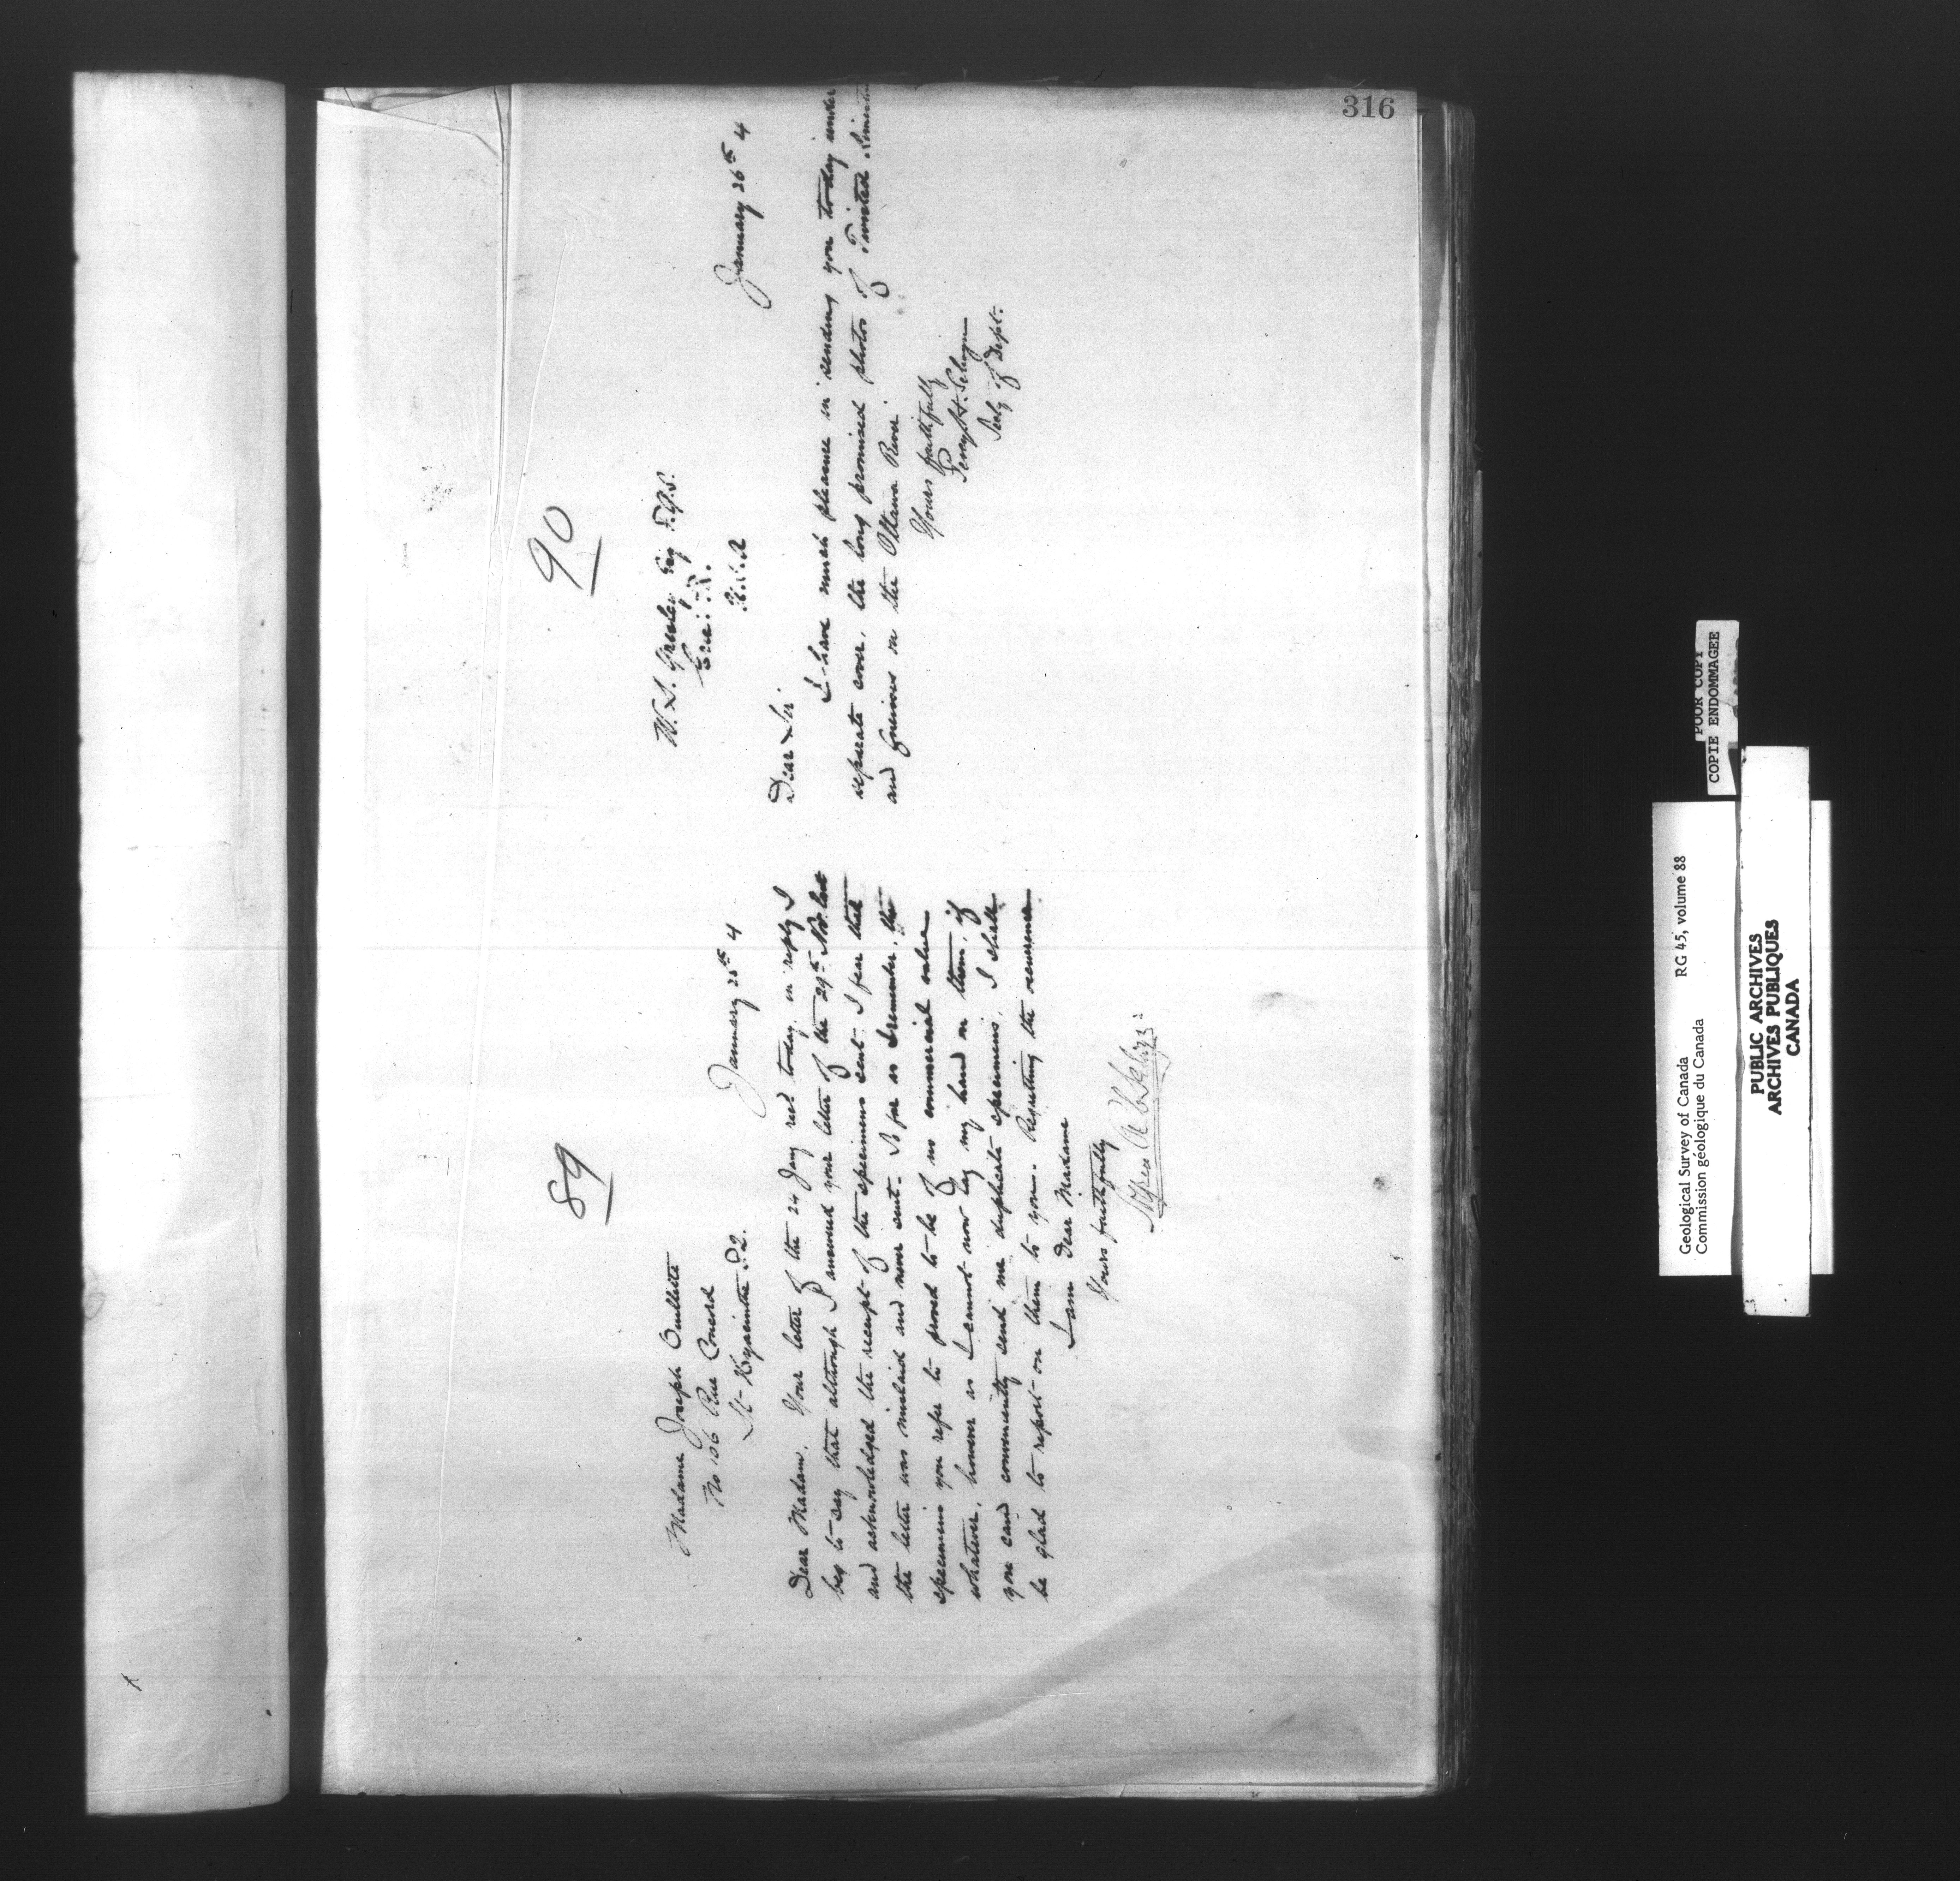 316
89
Madame Joseph Ouellette
No 106 Rue Concord
St- Hyacinthe P.Q.
January 25th 4
Dear Madam. Your letter of the 24 Jany recd today. in reply I
beg to say that although I answered your letter of the 29th Nov. last
and acknowledged the receipt of the specimens sent- I fear that
the letter was mislaid and never sent. As far as I remember, the
specimens you refer to proved to be of no commercial value
whatever, however as I cannot now lay my hand on them, if
you can conveniently send me duplicate specimens, I shall
be glad to report on them to you. Regretting the occurrence
I am Dear Madame
Yours faithfully
Alfred R C Selwyn
90
W. S. Gresley Esq F.G.S.
Erie: Pa.
U.S.A
January 26th 4
Dear Sir
I have much pleasure in sending you today under
separate cover, the long promised photos of Twisted
and Gneisses on the Ottawa River.
Yours faithfully
Percy H. Selwyn
Secty of Dept.
POOR COPY
COPIE ENDOMMAGEE
Geological Survey of Canada RG 45, volume 88
Commission géologique du Canada
PUBLIC ARCHIVES
ARCHIVES PUBLIQUES
CANADA